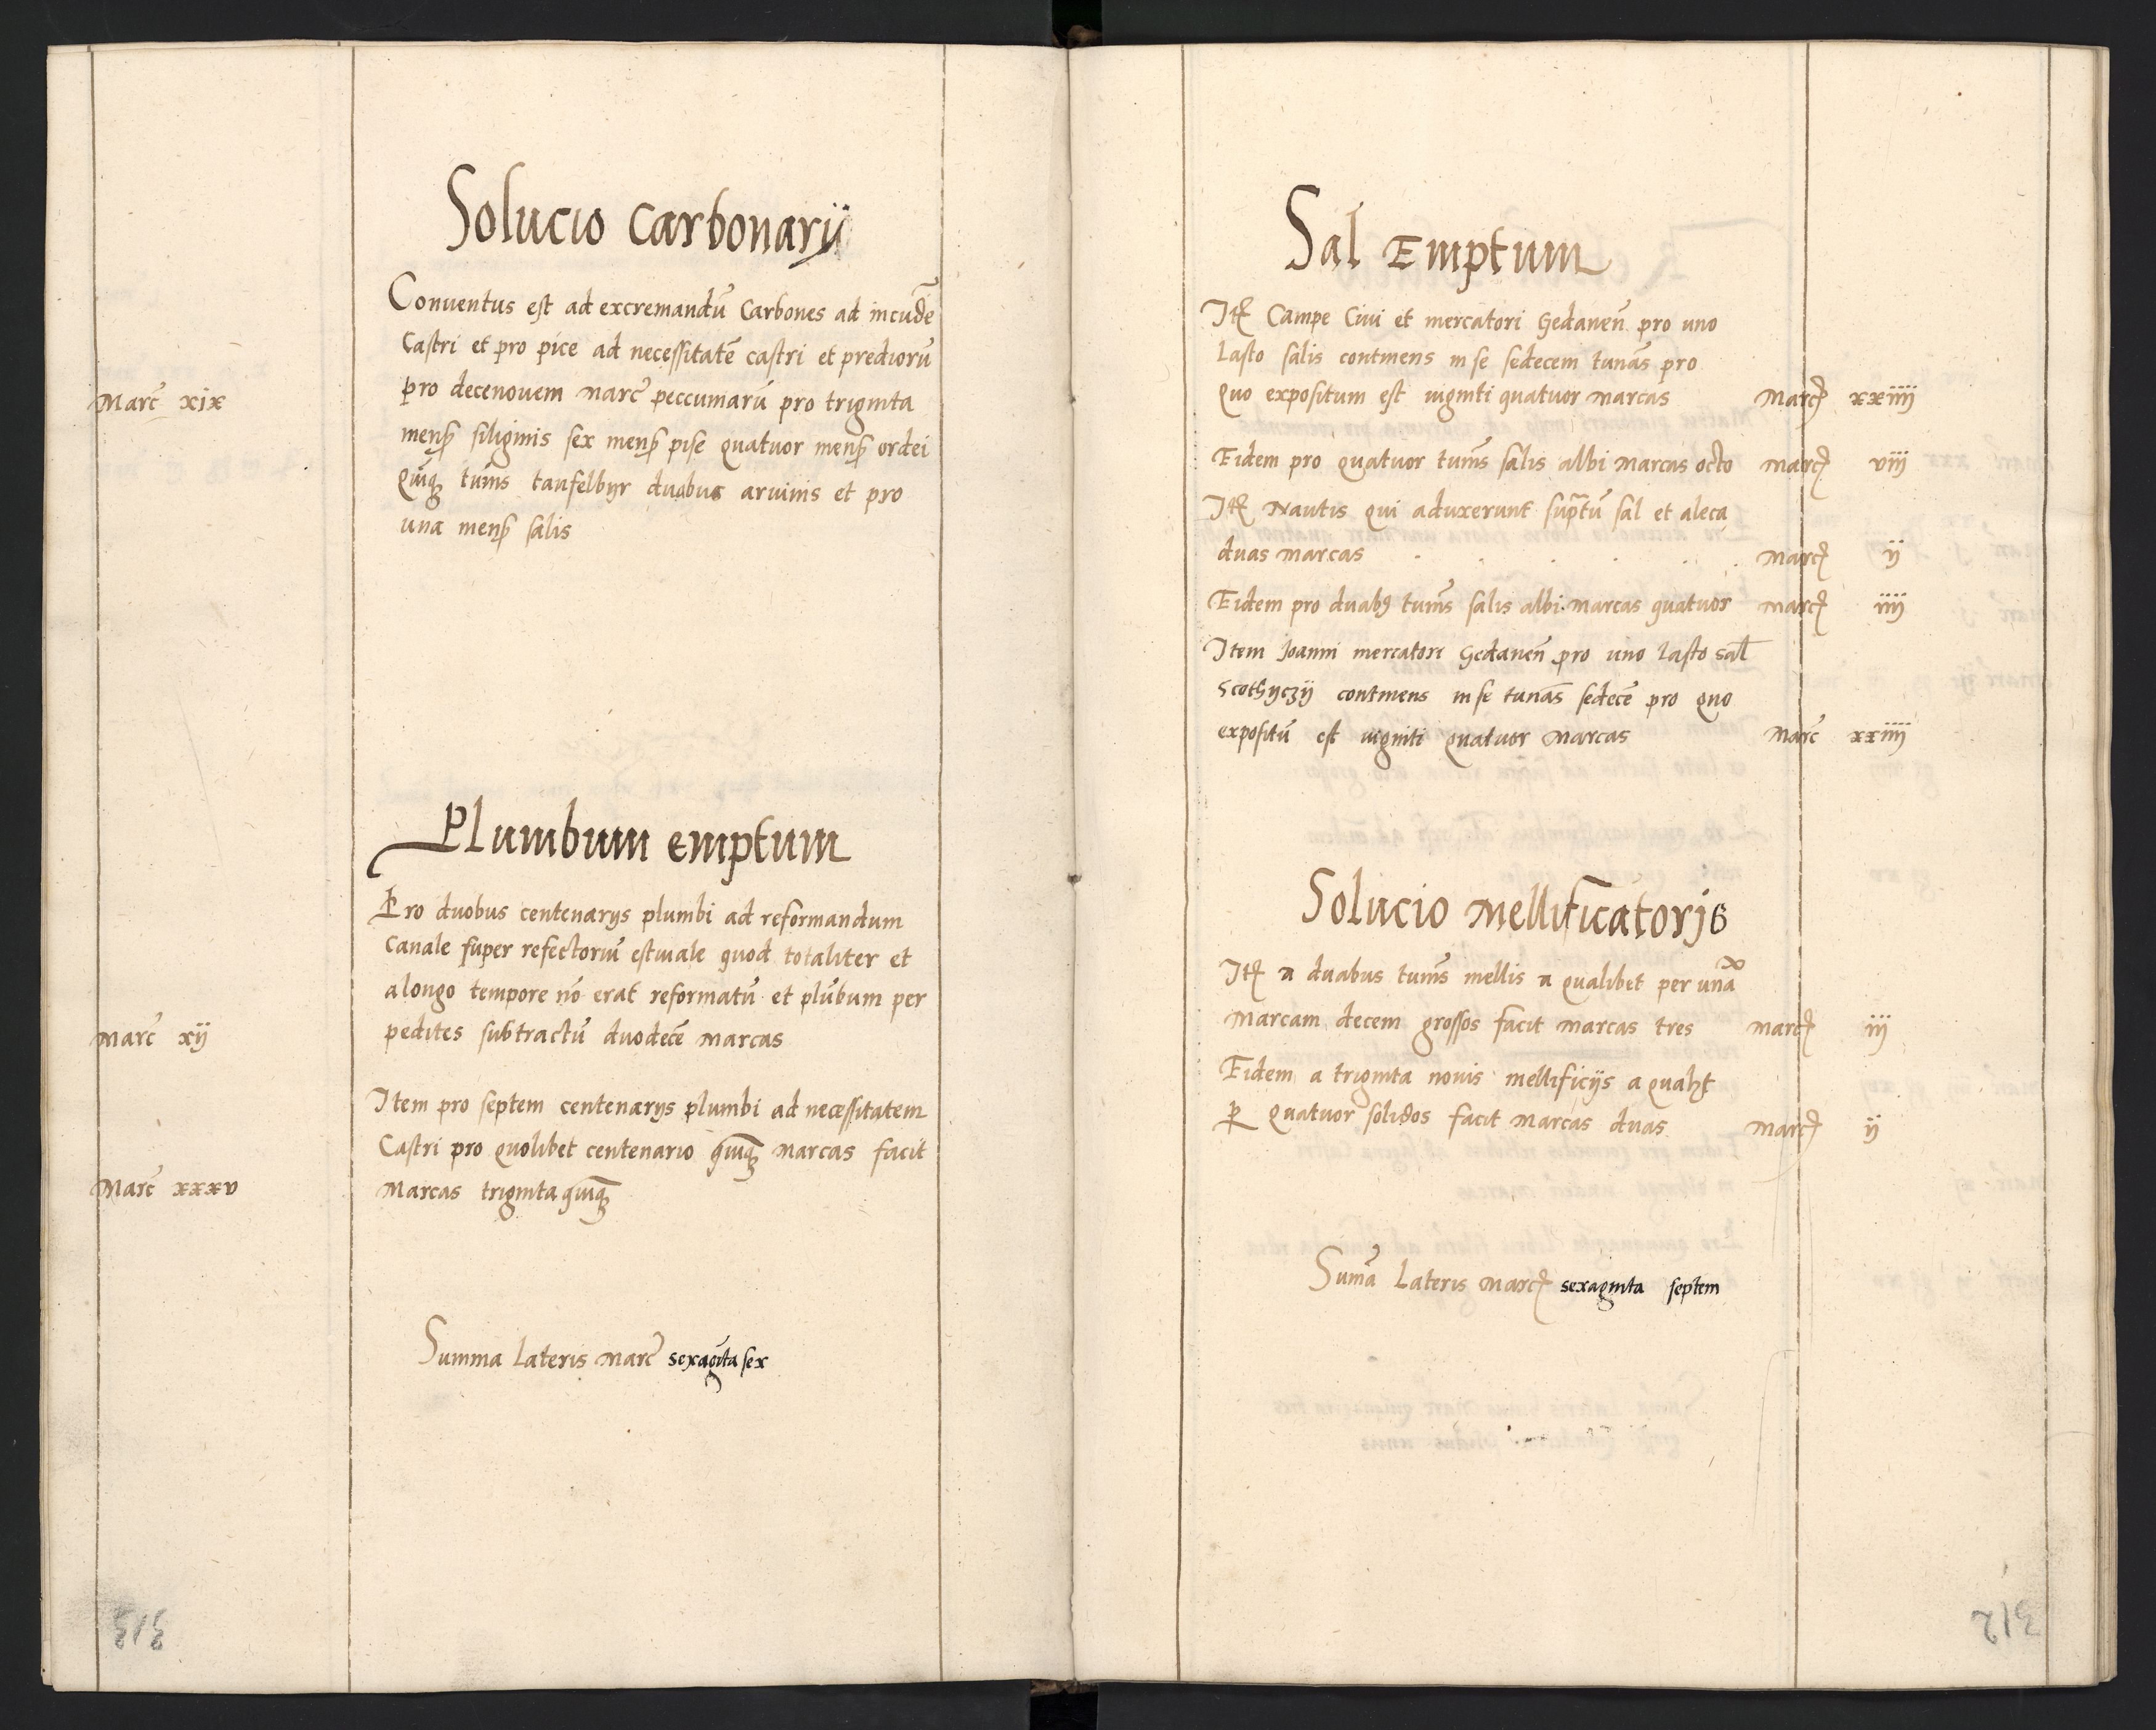 Solucio Carbonarij
Conuentus est ad excremandū Carbones ad incudē
Castri et pro pice ad necessitatē castri et prediorū
Marc̄ xix pro decenouem Marc̄ peccuniarū pro triginta
mens siliginis sex mens pise quatuor mens ordei
Quīq tuns tanfelbyr duabus aruinis et pro
una mens salis
Plumbum emptum
Pro duobus centenarijs plumbi ad reformandum
Canale super refectoriū estiuale quod totaliter et
a longo tempore nō erat reformatū et plūbum per
Marc̄ xij pedites subtractū duodecē marcas
Item pro septem centenarijs plumbi ad necessitatem
Castri pro quolibet centenario quīq Marcas facit
Marc̄ xxxv Marcas triginta quīq
Summa Lateris Marc̄ sexagīta sex
313
Sal Emptum
Itē Campe Ciui et mercatori Gedanen̄ pro uno
Lasto salis continens in se sedecem tunās pro
Quo expositum est uiginti quatuor marcas Marc xxiiij
Eidem pro quatuor tuns salis albi Marcas octo Marc viij
Itē Nautis qui aduxerunt sup̄tū sal et aleca
duas marcas Marc ij
Eidem pro duab9 tuns salis albi marcas quatuor Marc iiij
Item Joanni mercatori Gedanen̄ pro uno Lasto sal
Scothyczij continens in se tunās sedecē pro quo
expositū est uiginti quatuor Marcas Marc̄ xxiiij
Solucio Mellificatoris
Itē a duabus tuns mellis a qualibet per unā
Marcam decem grossos facit marcas tres Marc iij
Eidem a triginta nouis mellificijs a qualzt
P quatuor solidos facit Marcas duas Marc ij
Sumā Lateris Marc sexaginta septem
312